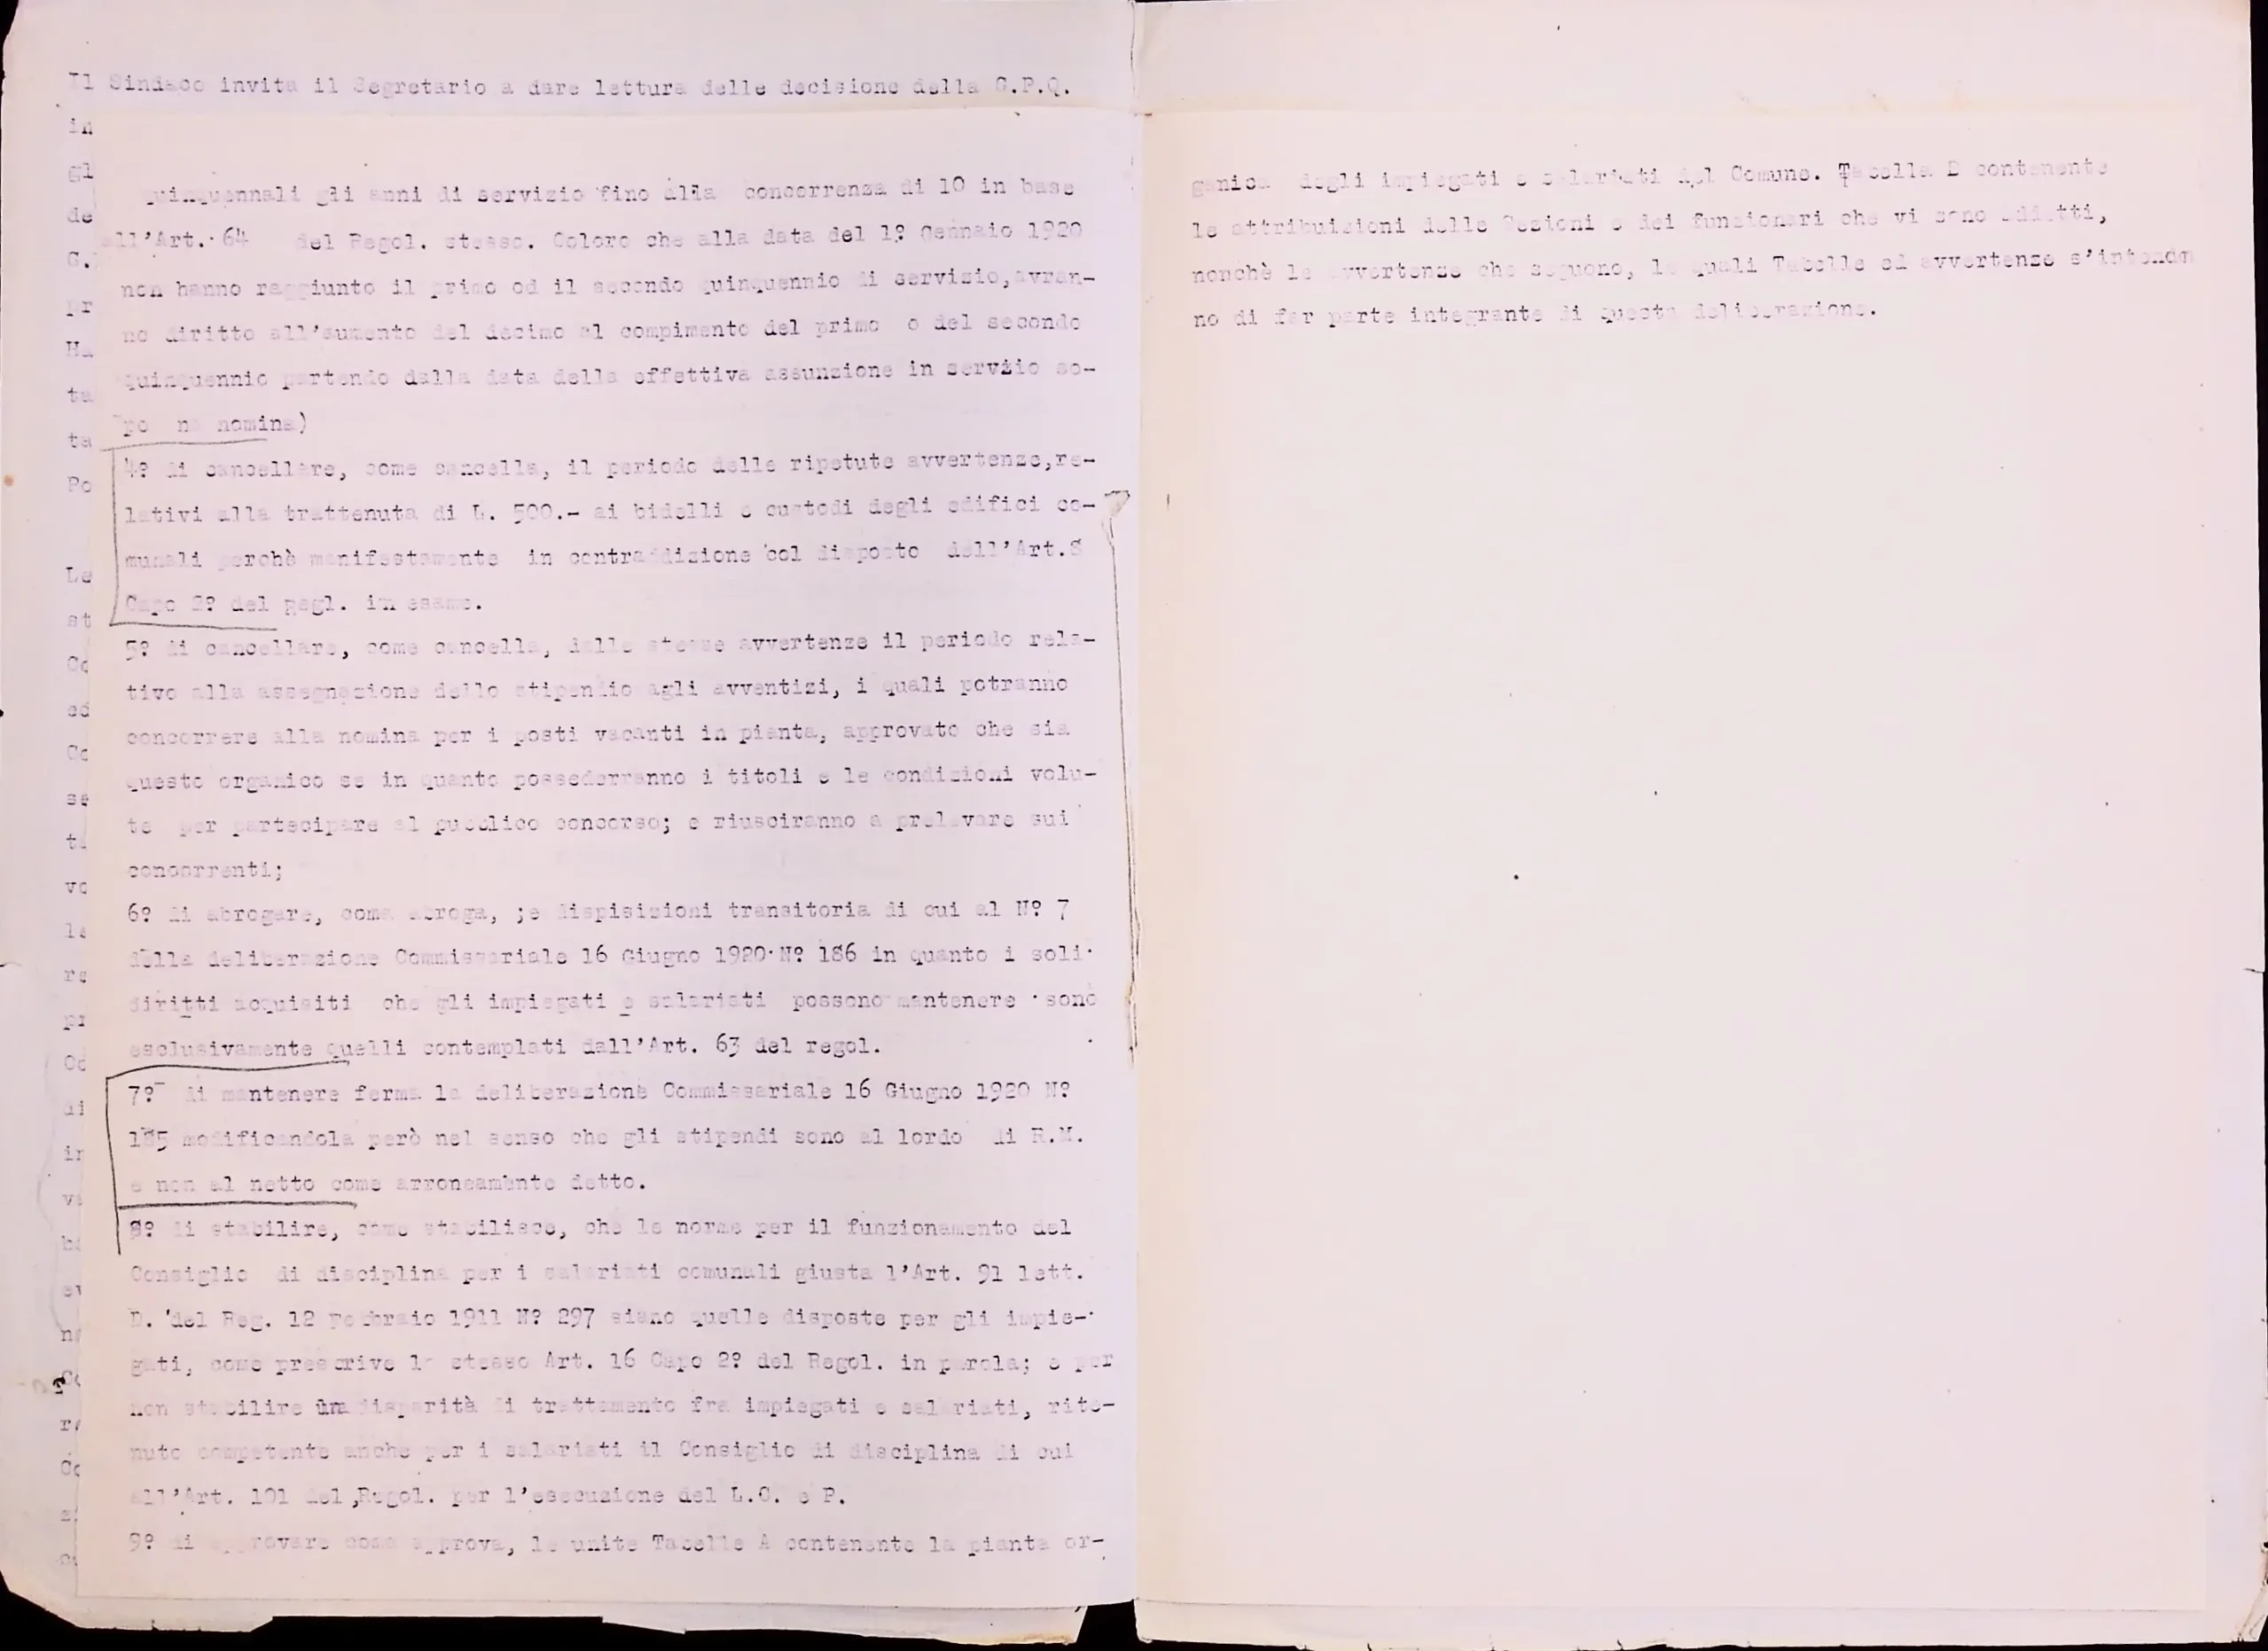 Il Sindaco invita il Segretario a dare lettura delle decisione della G.P.Q.
in
Gl
de
G.
pr
Ha
ta
ta
Po
Le
st
Co
ed
Co
se
vo
la
re
pr
di
ve
quinquennali gli anni di servizio fino alla concorrenza di 10 in base
all'Art. 64 del Regol. stesso. Coloro che alla data del 1º Gennaio 1920
non hanno raggiunto il primo od il secondo quinquennio di servizio,avran-
no diritto all'aumento del decimo al compimento del primo o del secondo
quinquennio partendo dalla data della effettiva assunzione in servzio
nomina)
4º di cancellare, come cancella, il periodo delle ripetute avvertenze,re-
lativi alla trattenuta di L. 500.- ai bidelli e custodi degli edifici co-
munali perchè manifestamente in contraddizione col disposto dell'Art.8
Capo 2º del Regl. in esame.
5º di cancellare, come cancella, dalle stesse avvertenze il periodo rela-
tivo alla assegnazione dello stipendio agli avventizi, i quali potranno
concorrere alla nomina per i posti vacanti in pianta, approvato che sia
questo organico se in quanto possederranno i titoli e le condizioni volu-
te per partecipare al pubblico concorso; e riusciranno a prelevare sui
concorrenti;
6º di abrogare, come abroga, ;e dispisizioni transitoria di cui al Nº 7
della deliberazione Commissariale 16 Giugno 1920 Nº 186 in quanto i soli
diritti acquisiti che gli impiegati e salariati possono mantenere sono
esclusivamente quelli contemplati dall'Art. 63 del regol.
7º di mantenere ferma la deliberazione Commissariale 16 Giugno 1920 Nº
185 modificandola però nel senso che gli stipendi sono al lordo di R.M.
e non al netto come arroneamente detto.
8º di stabilire, come stabilisce, che le norme per il funzionamento del
Consiglio di disciplina per i salariati comunali giusta l'Art. 91 lett.
D. del Reg. 12 Febbraio 1911 Nº 297 siano quelle disposte per gli impie-
gati, come prescrive lo stesso Art. 16 Capo 2º del Regol. in parola; e per
non stabilire una disparità di trattamento fra impiegati e salariati, rite-
nuto competente anche per i salariati il Consiglio di disciplina di cui
all'Art. 101 del Regol. per l'esecuzione del L.C. e P.
9º di approvare come approva, le unite Tabelle A contenente la pianta or-
ganica degli impiegati e salariati del Comune. Tabella B contenente
le attribuizioni delle Sezioni e dei funzionari che vi sono addetti,
nonchè le avvertenze che seguono, le quali Tabelle ed avvertenze s'intendo
no di far parte integrante di questa deliberazione.